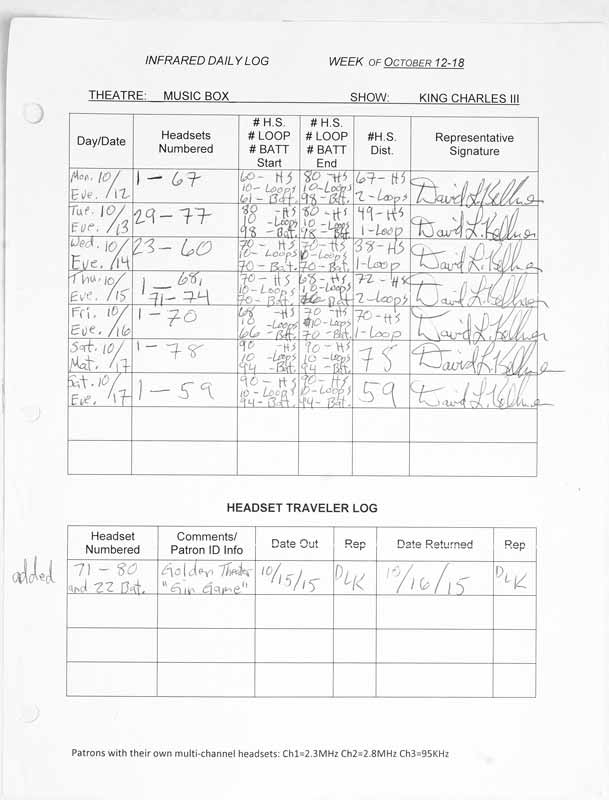 INFRARED DAILY LOG WEEK OF OCTOBER 12-18
THEATRE: MUSIC BOX SHOW: KING CHARLES III
Day/Date Headsets Numbered # H.S. # LOOP # BATT Start # H.S. # LOOP # BATT End #H.S. Dist. Representative Signature
Mon. 10/12 Eve. 1 - 67 60 - HS 10 - Loops 61 - Bat. 80 - HS 10 - Loops 98 - Bat. 67 - HS 2 - Loops David L. Kellner
Tue. 10/13 Eve. 29 - 77 80 - HS 10 - Loops 98 - Bat. 80 - HS 10 - Loops 98 - Bat. 49 - HS 1 - Loop David L. Kellner
Wed. 10/14 Eve. 23 - 60 70 - HS 10 - Loops 70 - Bat. 70 - HS 10 - Loops 70 - Bat. 38 - HS 1 - Loop David L. Kellner
Thu. 10/15 Eve. 1 - 68, 71 - 74 70 - HS 10 - Loops 70 - Bat. 68 - HS 10 - Loops Bat 72 - HS 2 - Loops David L. Kellner
Fri. 10/16 Eve. 1 - 70 68 - HS 10 - Loops 66 - Bat. 70 - HS 10 - Loops 70 - Bat. 70 - HS 1 - Loop David L. Kellner
Sat. 10/17 Mat. 1 - 78 90 - HS 10 - Loops 94 - Bat. 90 - HS 10 - Loops 94 - Bat. 78 David L. Kellner
Sat. 10/17 Eve. 1 - 59 90 - HS 10 - Loops 94 - Bat. 90 - HS 10 - Loops 94 - Bat. 59 David L. Kellner
HEADSET TRAVELER LOG
Headset Numbered Comments/ Patron ID Info Date Out Rep Date Returned Rep
added 71 - 80 and 22 Bat. Golden Theater "Gin Game" 10/15/15 DLK 10/16/15 DLK
Patrons with their own multi-channel headsets: Ch1=2.3MHz Ch2=2.8MHz Ch3=95KHz